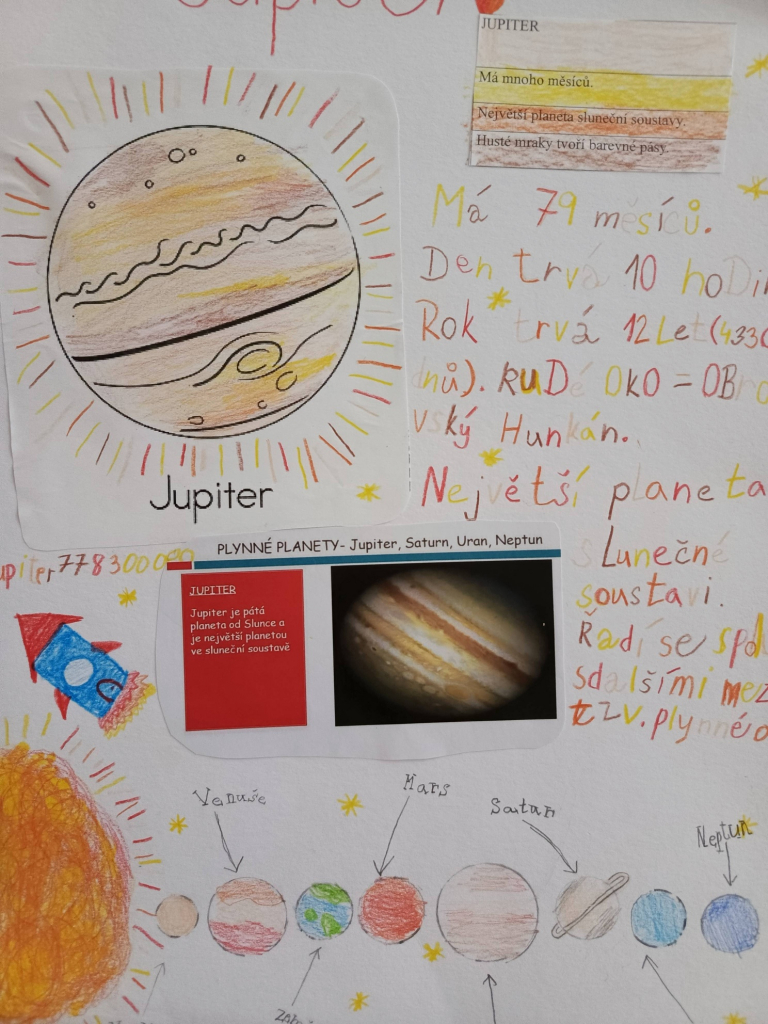 Jupiter
JUPITER
Má mnoho měsíců.
Největší planeta sluneční soustavy.
Husté mraky tvoří barevné pásy.
Má 79 měsíců.
Den trvá 10 hoDin
Rok trvá 12 Let (4330
dnů). RuDé OkO = OBrO
vský Hunkán.
Největší planeta
sLunečné
soustavi.
Řadí se spol
sdalšími mez
tzv. plynné o
Jupiter
upiter 778300000
PLYNNÉ PLANETY- Jupiter, Saturn, Uran, Neptun
JUPITER
Jupiter je pátá
planeta od Slunce a
je největší planetou
ve sluneční soustavě
Venuše
Mars
Saturn
Neptun